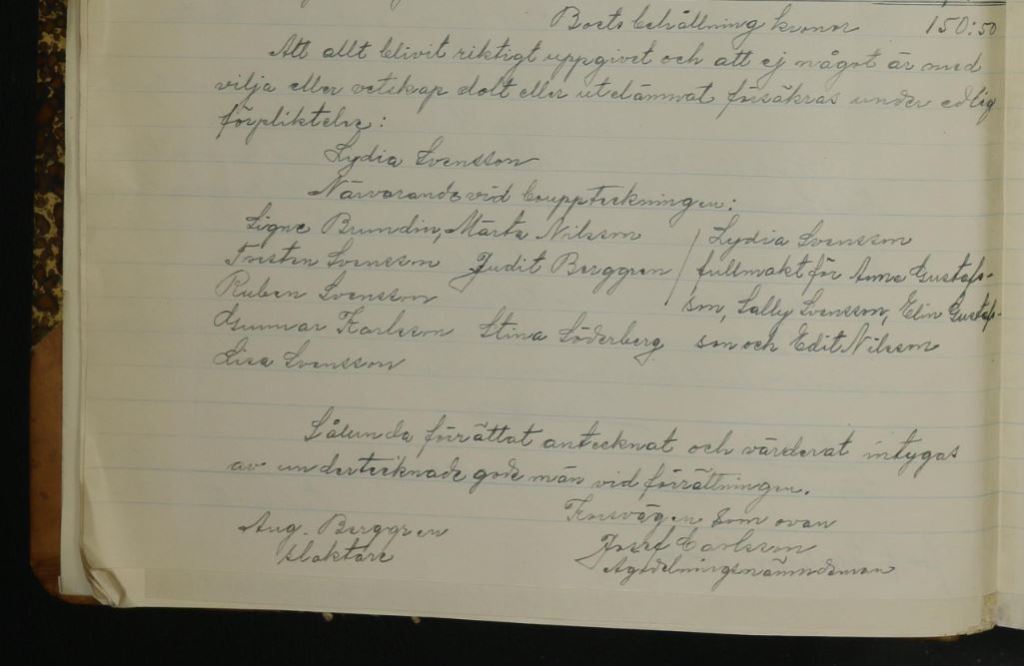 Boets behållning kronor 150:50
Att allt blivit riktigt uppgivet och att ej något är med
vilja eller vetskap dolt eller utelämnat försäkras under edlig
förpliktelse:
Lydia Svensson
Närvarande vid bouppteckningen:
Signe Brundin, Märta Nilsson / Lydia Svensson
Torsten Svensson Judit Berggren / fullmakt för Anna Gustafs-
Ruben Svensson son, Sally Svensson, Elin Gustafs-
Gunnar Karlsson Stina Söderberg son och Edit Nilsson
Lisa Svensson
Sålunda förättat antecknat och värderat intygas
av undertecknade gode män vid förrättningen.
Korsvägen som ovan
Aug. Berggren Josef Carlsson
slaktare Ägodelningsnämndeman